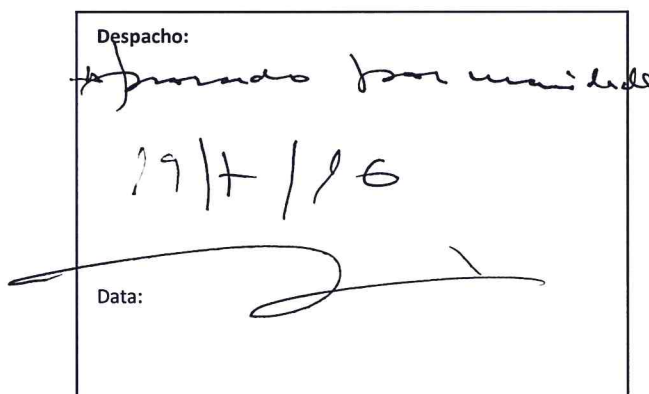 Despacho:
Aprovado por unanimidade
19/7/16
Data: